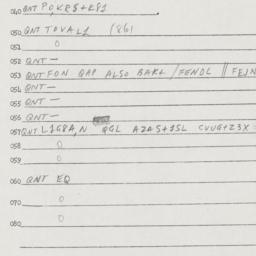 040 QNT POKRS+RS1
050 QNT TOVAL1 (86)
051 0
052 QNT —
053 QNT FON QAP ALSO BAKL / FENDL || FEJN
054 QNT —
055 QNT —
056 QNT —
057 QNT L1G8A,N QGL A2AS+1SL CVUG+Z3X
058 0
059 0
060 QNT EQ
070 0
080 0